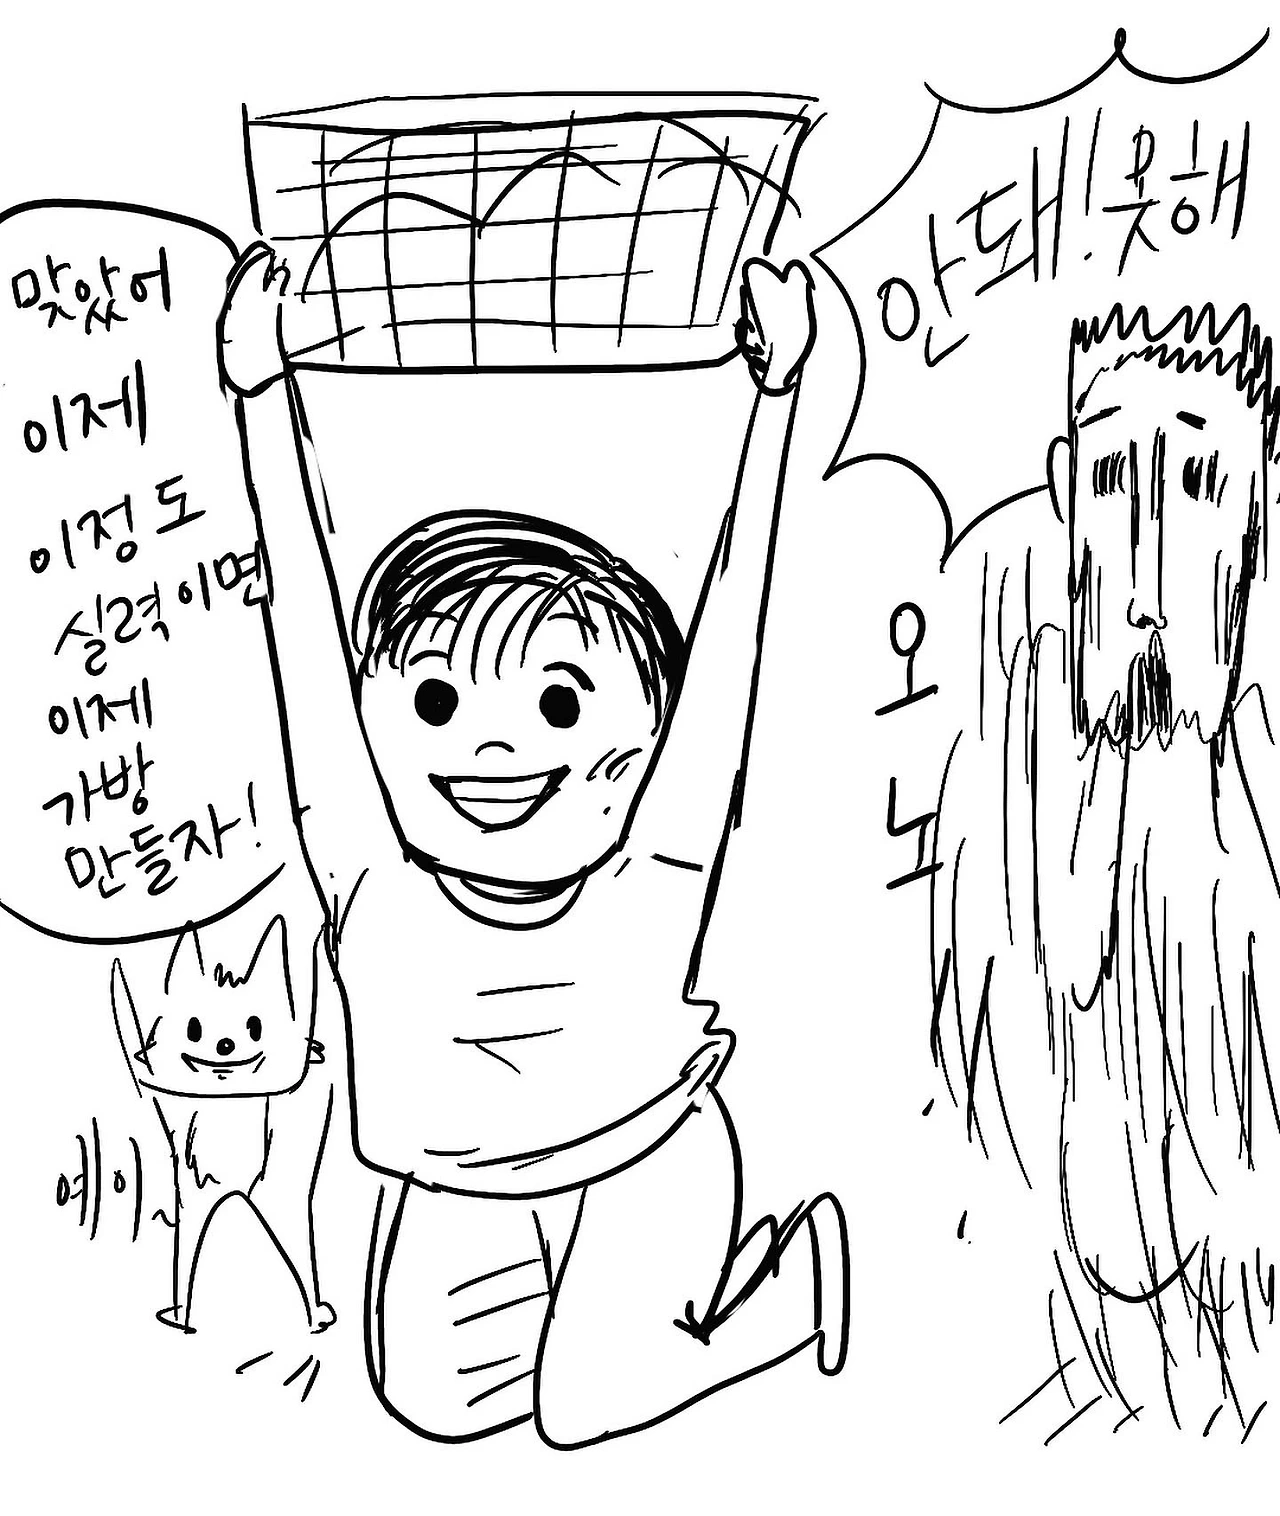 맞았어
이제
이정도
실력이면
이제
가방
만들자!
안돼! 못해
오
노
예이~